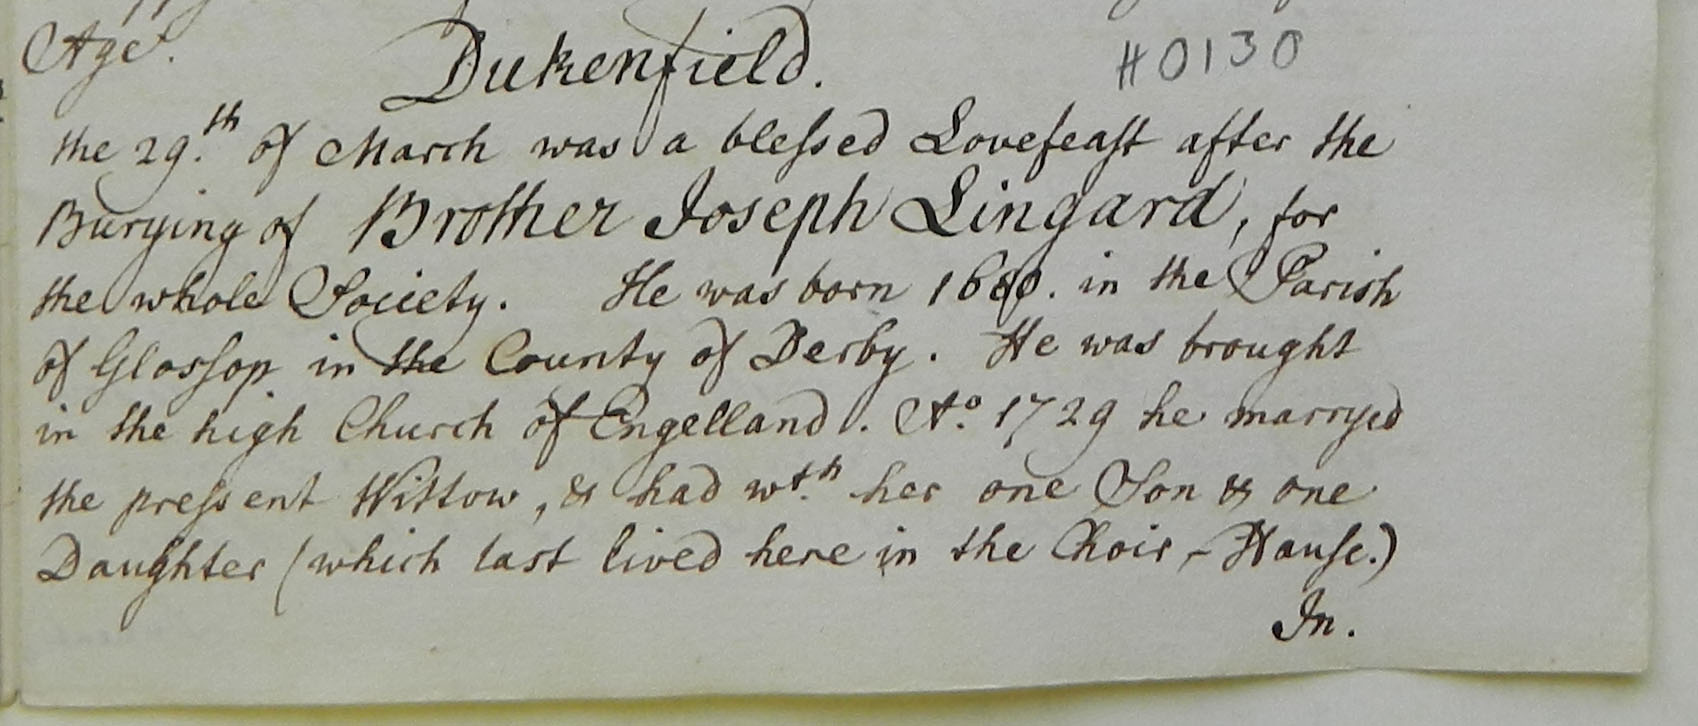 Age.
Dukenfield. #0130
the 29.th of March was a blessed Lovefeast after the
Burying of Brother Joseph Lingard, for
the whole Society. He was born 1680. in the Parish
of Glossop in the County of Derby. He was brought
in the high Church of Engelland. Ao. 1729 he marryed
the present Wittow, & had wt.h her one Son & one
Daughter (which last lived here in the Choir-Hause.)
In.